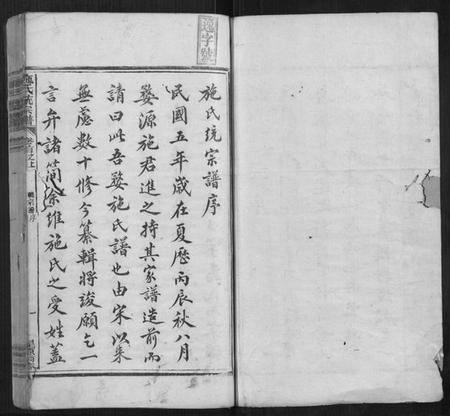 逸字號
施氏統宗譜序
民國五年歲在夏歷丙辰秋八月
婺源施君進之持其家譜造前而
請曰此吾婺施氏譜也由宋以來
無慮數十修今纂輯將竣願乞一
言弁諸簡余維施氏之受姓蓋
施氏統宗譜
卷首之上
統宗譜序
一